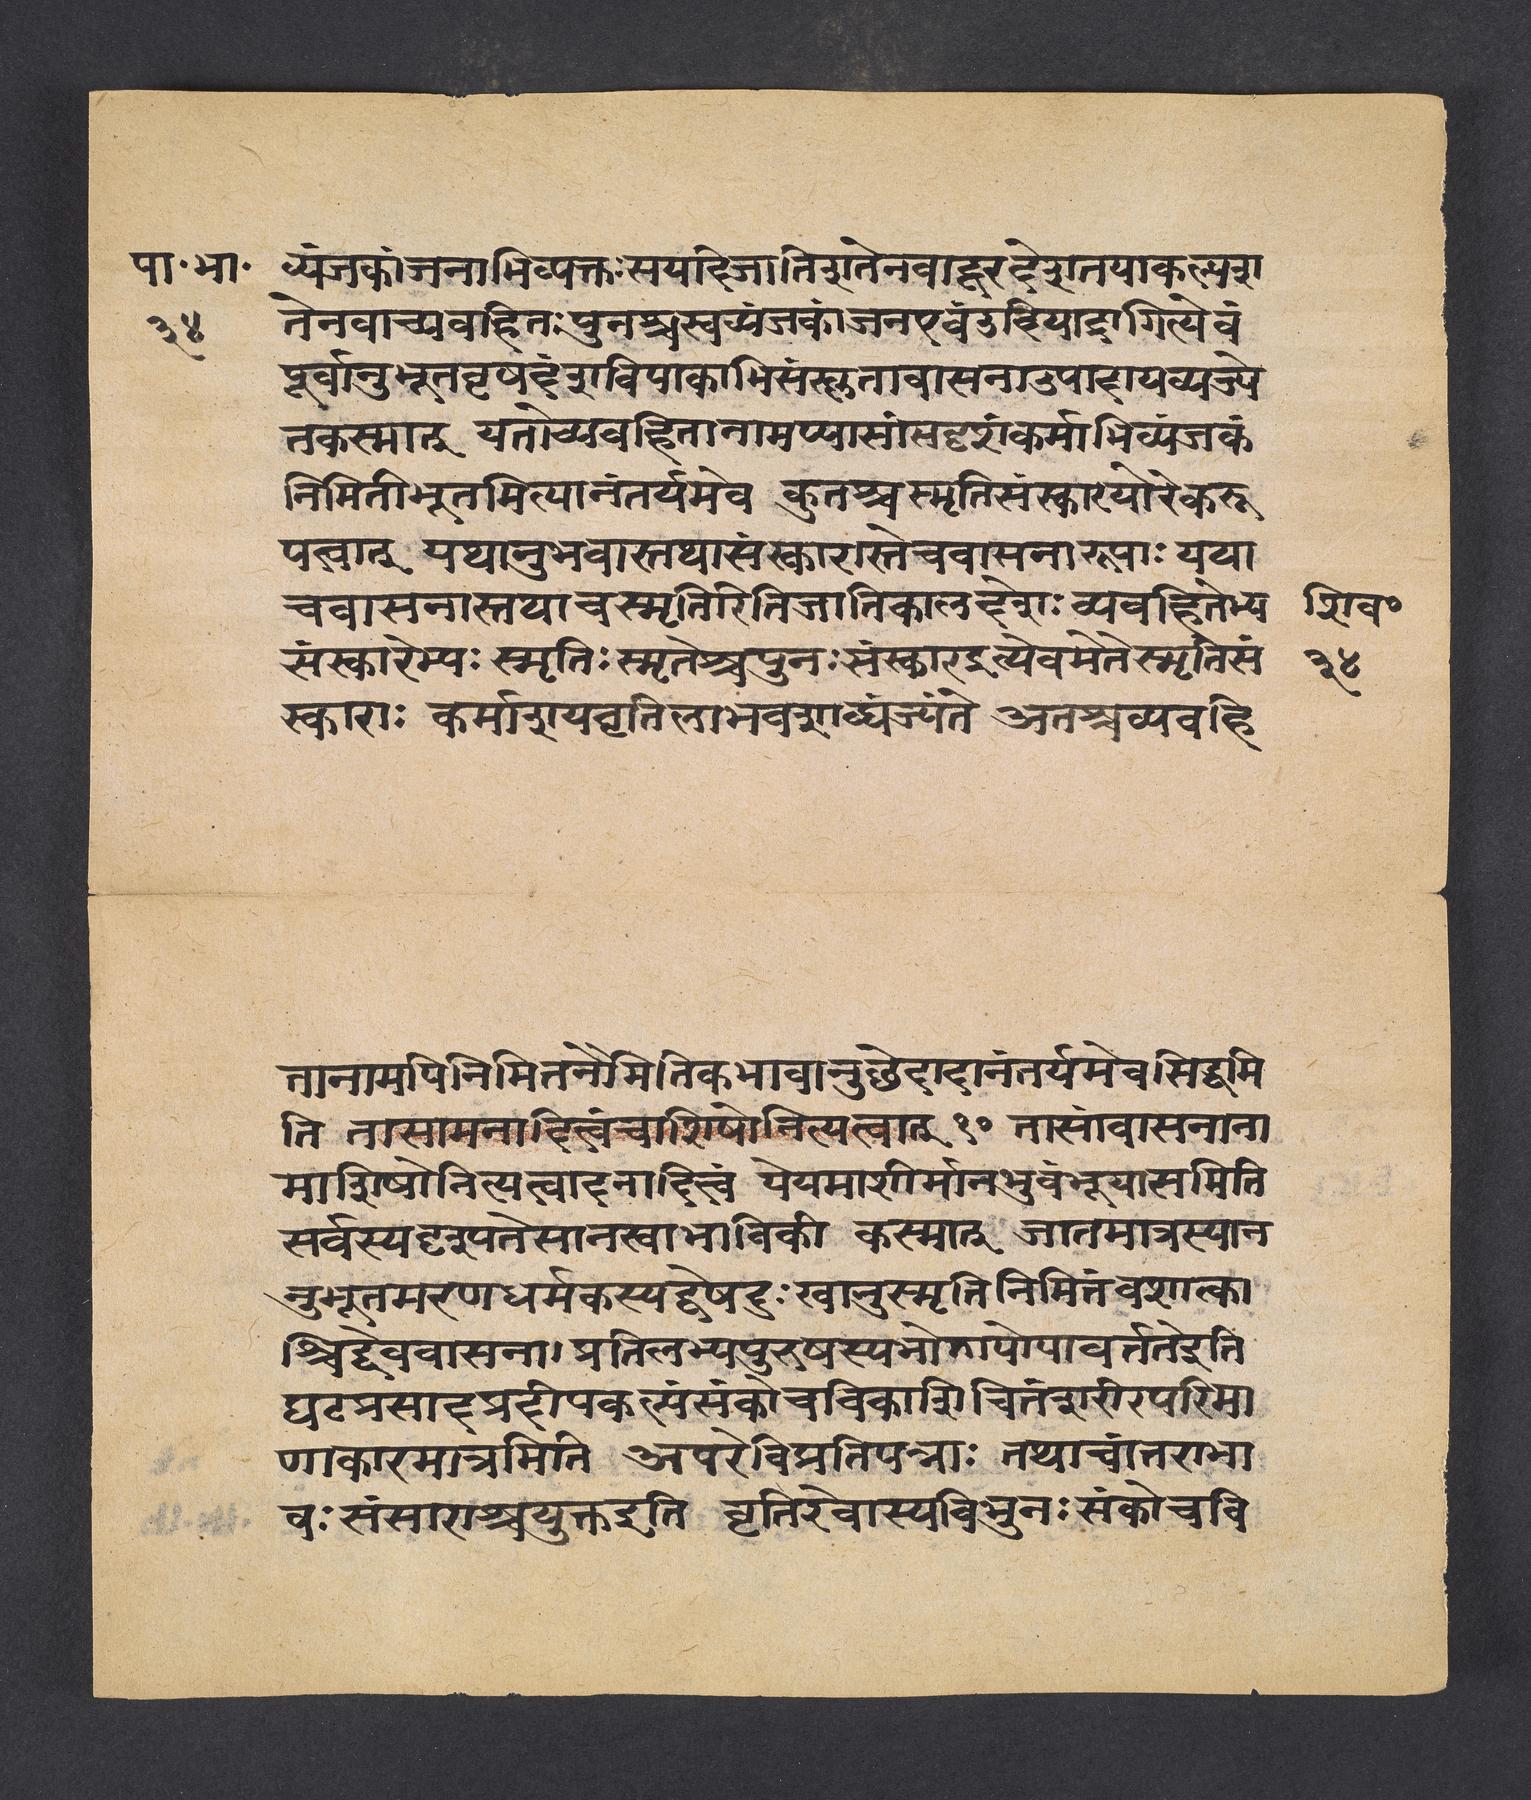 पा॰भा॰ व्यंजकांजनाभिव्यक्तः सयदिजातिशतेनवादूरदेशतयाकल्पश
३४ तेनवाव्यवहितः पुनश्चस्वव्यंजकांजनएवंउदियाद्रागित्येवं
पूर्वानुभूतवृषदंशविपाकाभिसंस्कृतावासनाउपादायव्यज्ये
तकस्मात् यतोव्यवहितानामप्यासांसदृशंकर्माभिव्यंजकं
निमितीभूतमित्यानंतर्यमेव कुतश्च स्मृतिसंस्कारयोरेकरू
पत्वात् यथानुभवास्तथासंस्कारास्तेचवासनारूपाः यथा
चवासनास्तथाचस्मृतिरितिजातिकालदेशः व्यवहितेभ्य शिव॰
संस्कारेभ्यः स्मृतिः स्मृतेश्चपुनः संस्कारइत्येवमेतेस्मृतिसं ३४
स्काराः कर्माशयवृतिलाभवशाव्द्यंज्यंते अतश्चव्यवहि
तानामपिनिमितनैमितिकभावानुछेदादानंतर्यमेवसिद्धमि
ति तासामनादित्वंचाशिषोनित्यत्वात् १० तासांवासनाना
माशिषोनित्यत्वादनादित्वं येयमाशीर्मानभुवंभूयासमिति
सर्वस्यदृश्यतेसानस्वाभाविकी कस्मात् जातमात्रस्यान
नुभूतमरणधर्मकस्यद्वेषदुःखानुस्मृतिनिमित्तंवशात्का
श्चिद्देववासना। प्रतिलभ्यपुरुषस्यभोगायोपावर्त्ततेइति
घटप्रसादप्रदीपकल्पंसंकोचविकाशि चितंशरीरपरिमा
णाकारमात्रमिति अपरेविप्रतिपन्नाः तथाचांतराभा
वः संसारश्चयुक्तइति वृतिरेवास्यविभुनः संकोचवि